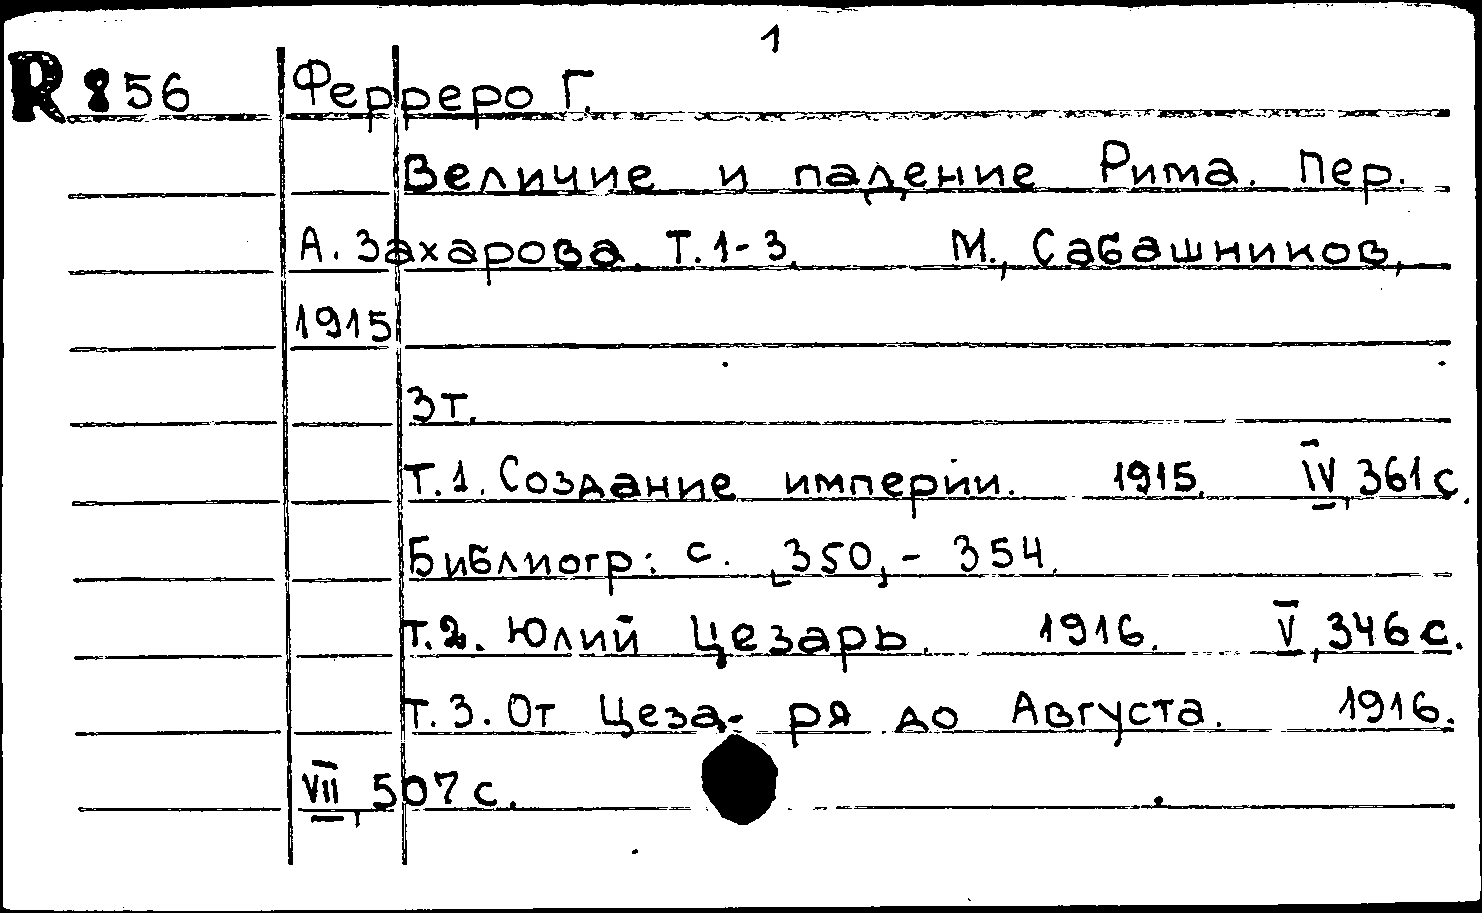 1
R 856 Ферреро Г.
Величие и падение Рима. Пер.
А. Захарова. Т.1-3. М., Сабашников,
1915
3т.
Т.1. Создание империи. 1915. IV, 361 с.
Библиогр: с. [350] - 354.
Т.2. Юлий Цезарь. 1916. V, 346 с.
Т.3. От Цеза- ря до Августа. 1916.
VII, 507 с.